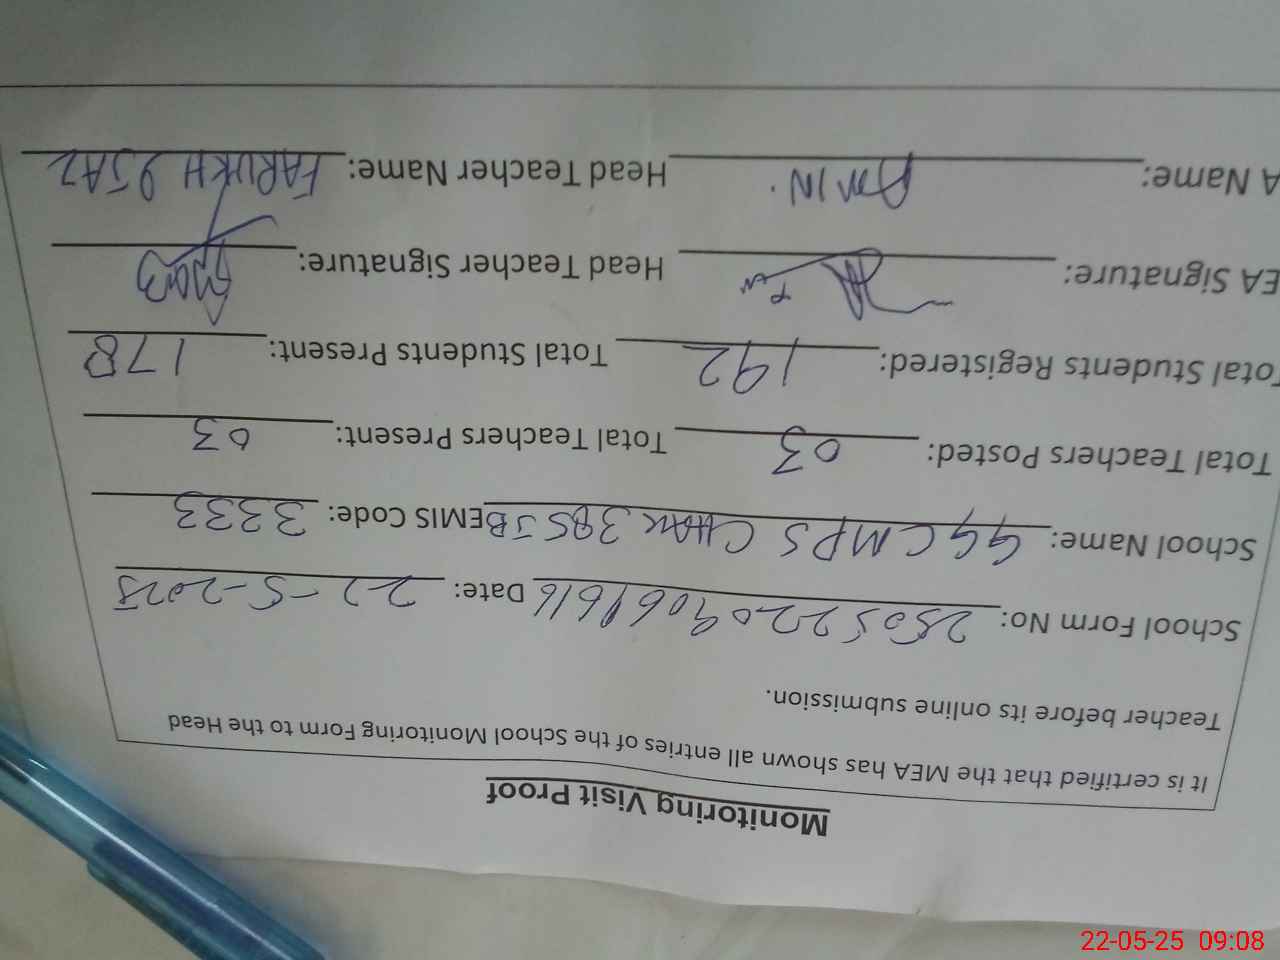 Monitoring Visit Proof
It is certified that the MEA has shown all entries of the School Monitoring Form to the Head
Teacher before its online submission.
School Form No: 2505220906 1616 Date: 22-5-2025
School Name: GGCMPS CHAK 385 JB EMIS Code: 3333
Total Teachers Posted: 03 Total Teachers Present: 03
Total Students Registered: 192 Total Students Present: 178
EA Signature: Head Teacher Signature:
A Name: AMIN. Head Teacher Name: FARUKH
22-05-25 09:08